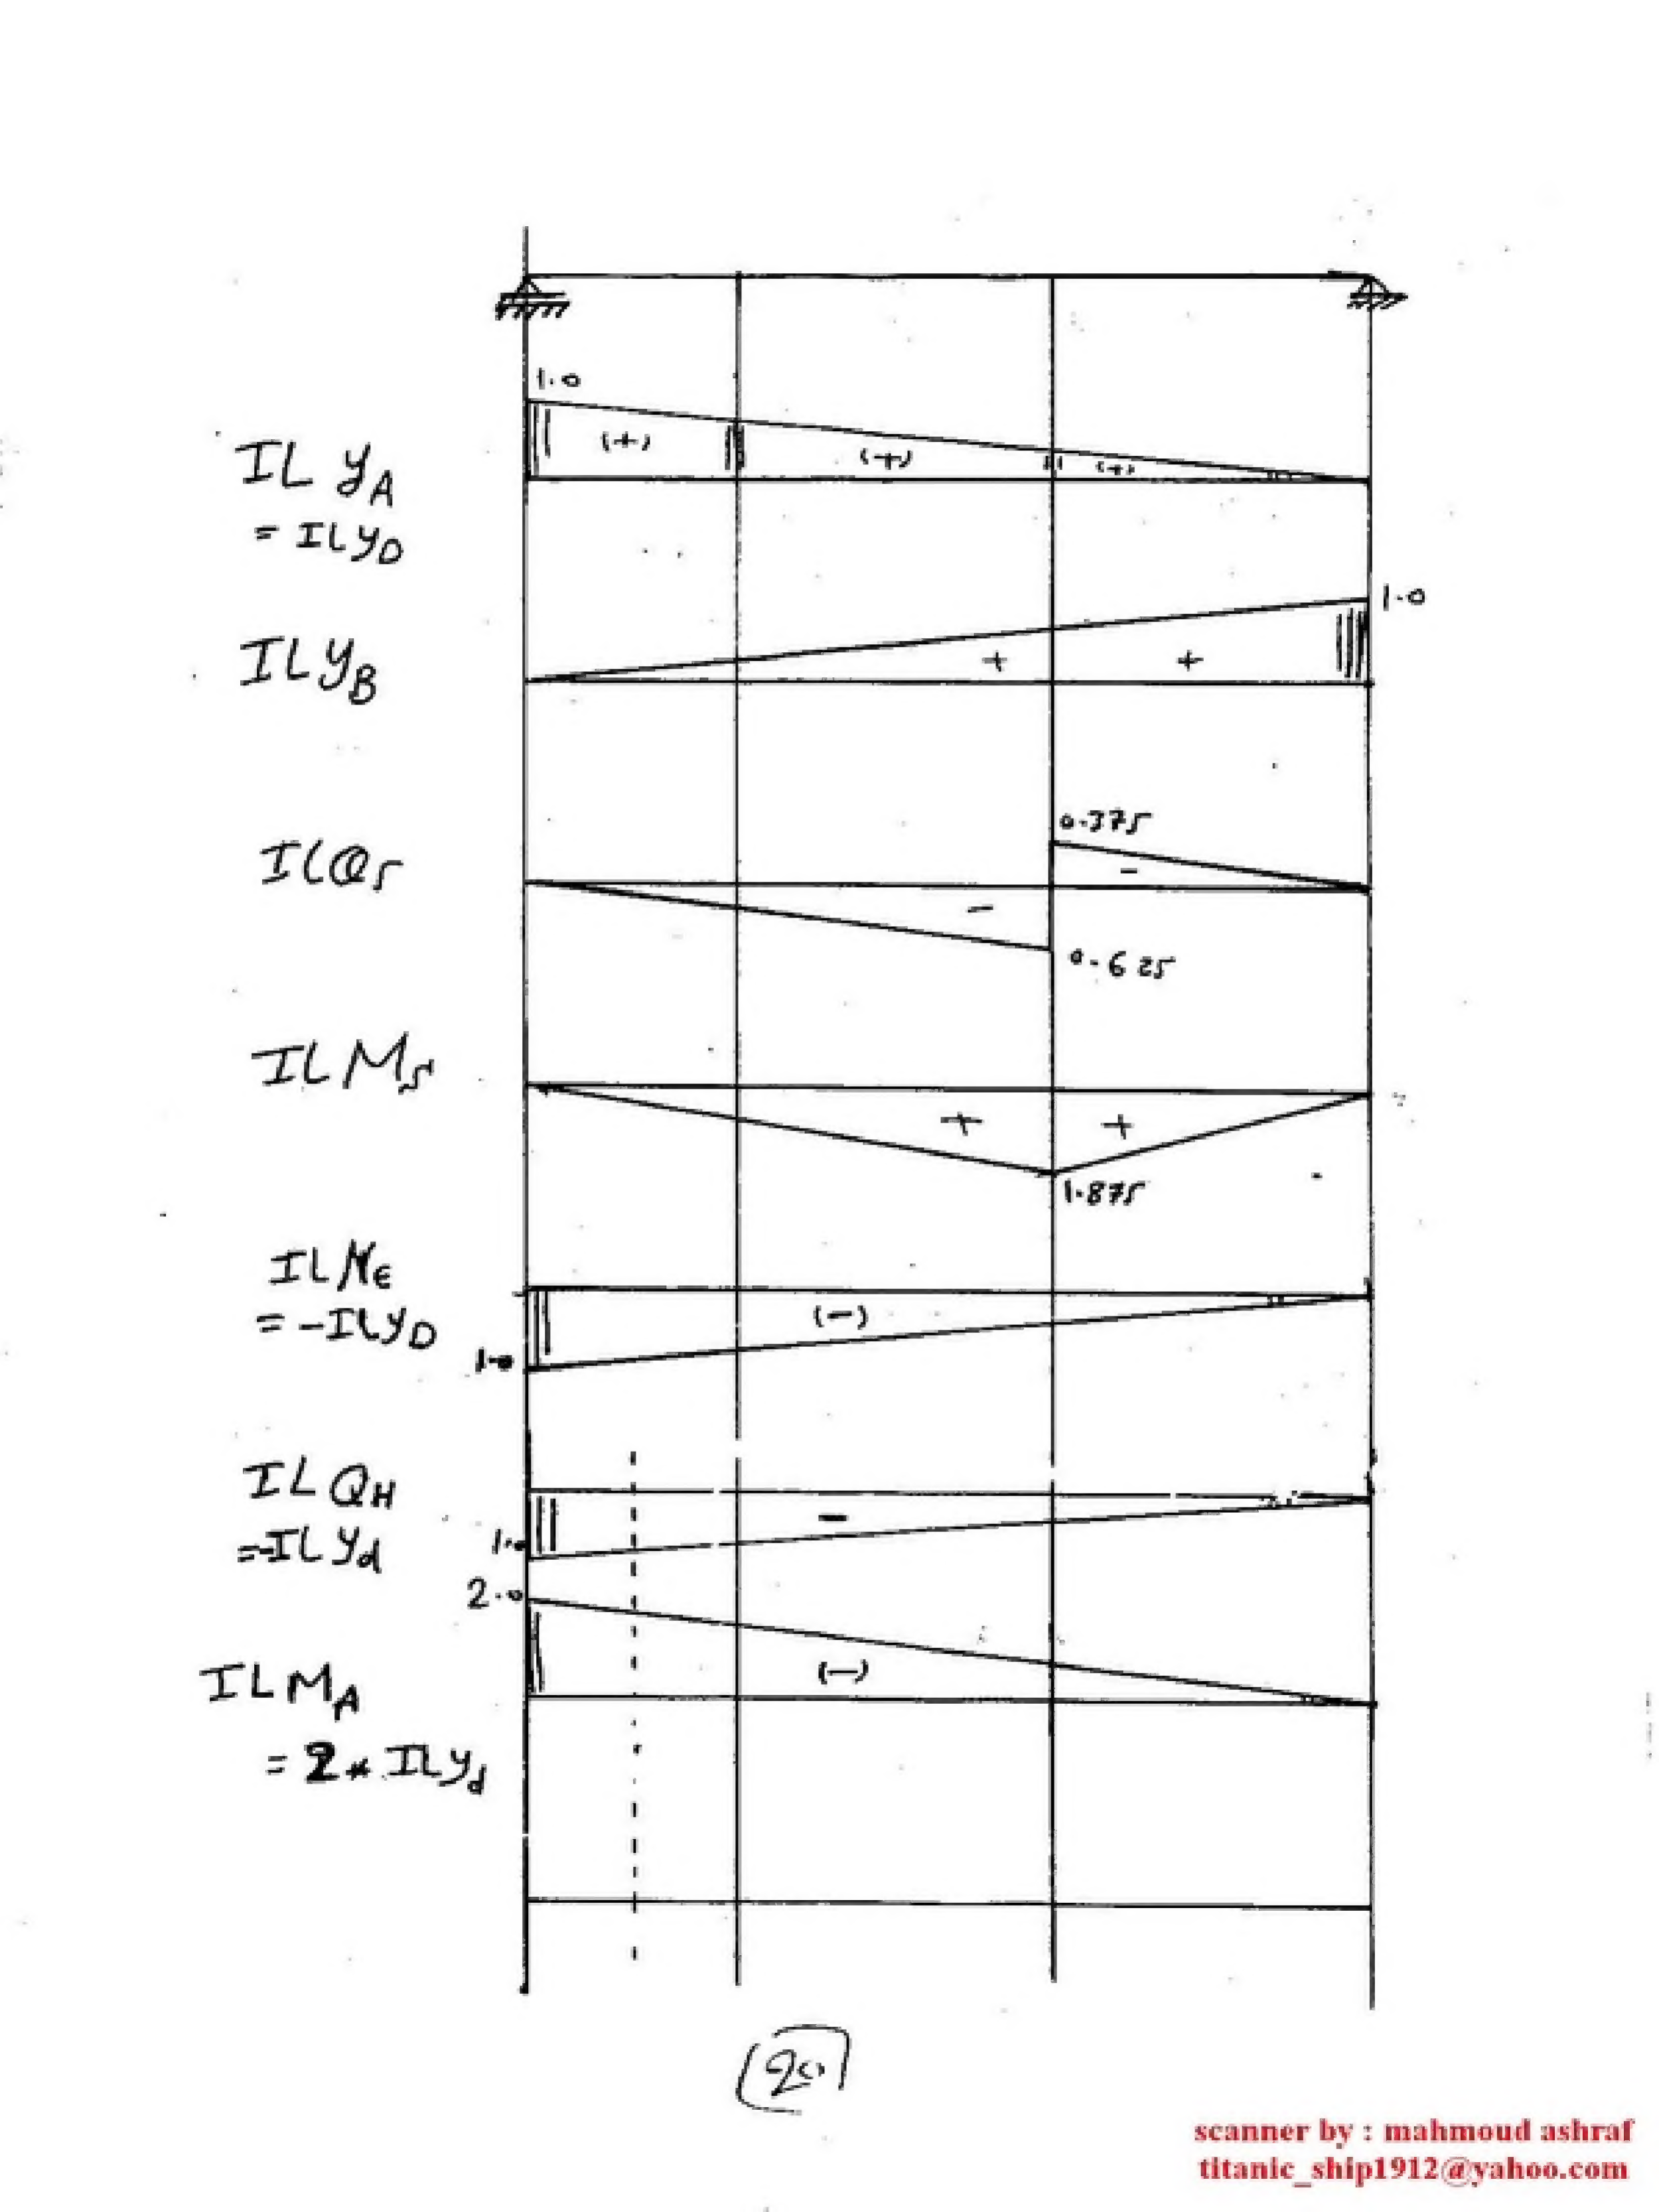 1.0
(+)
(+)
(+)
IL yA
= ILyD
1.0
ILyB
+ +
0.375
ILQs
-
-
0.625
ILMs
+ +
1.875
ILNE
= -ILyD
(-)
1.0
ILQH
=-ILyd
-
1.0
2.0
ILMA
(-)
= 2* ILyd
20
scanner by : mahmoud ashraf
titanic_ship1912@yahoo.com